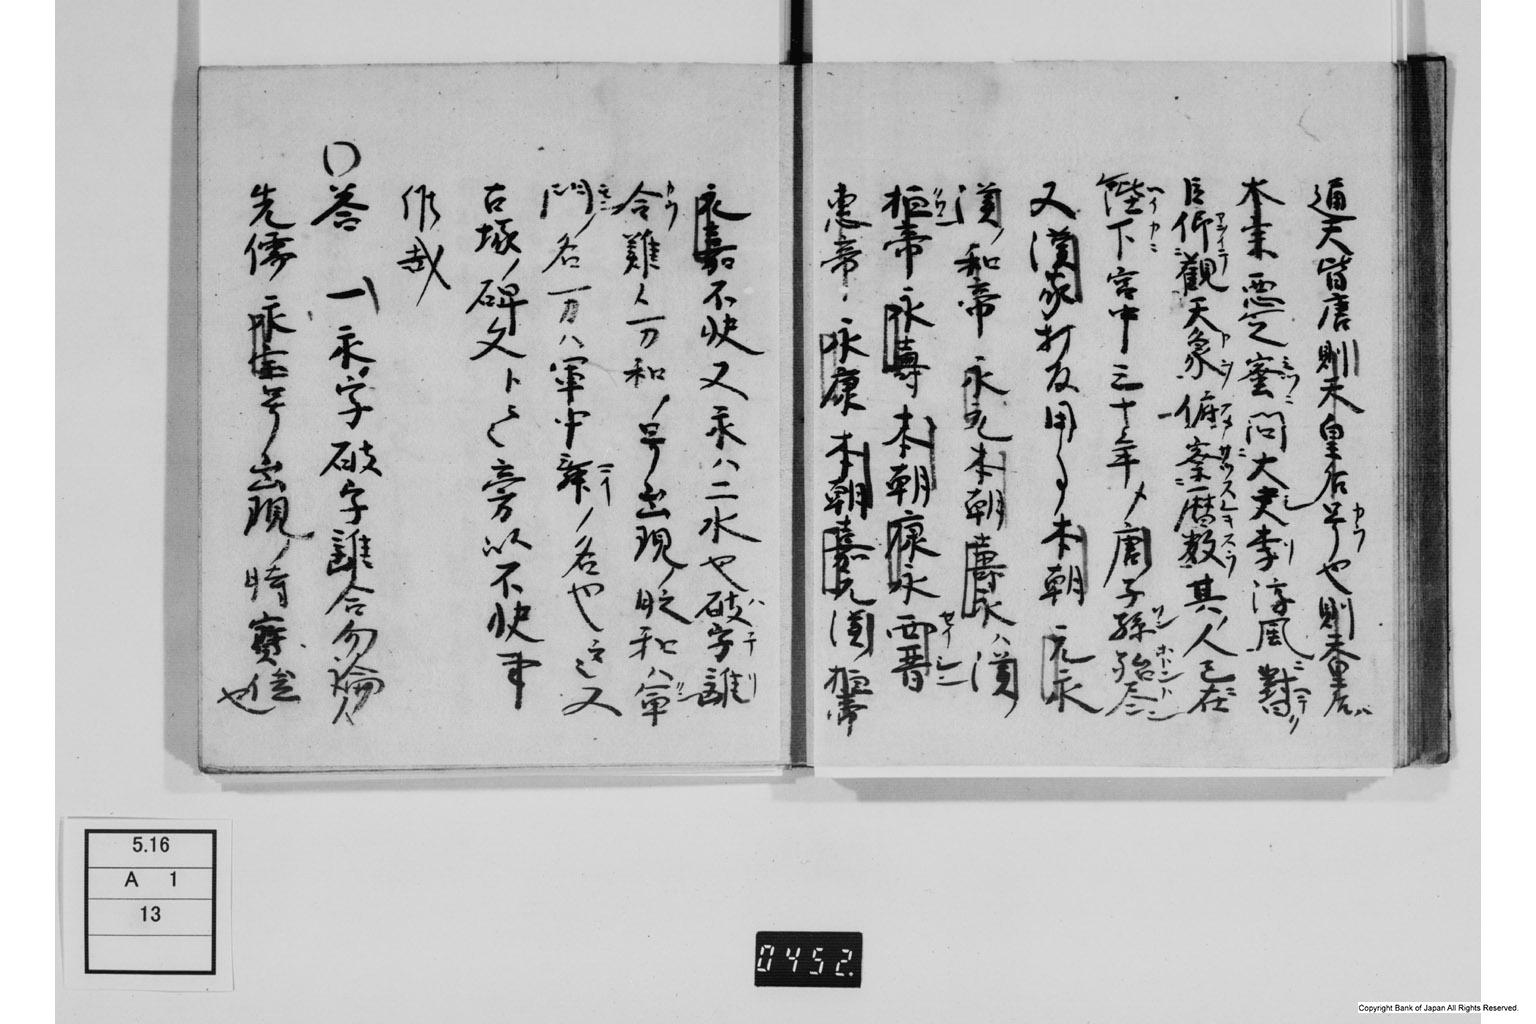 通天皆唐則天皇后号也則天皇后ハ
本来悪之密問大史李淳風對
臣仰観天象俯察暦数其人已在
陛下宮中三十年〆唐子孫殆尽
又漢家打反用る本朝元永
漢ノ和帝永元本朝壽永ハ漢ノ
桓帝永壽本朝康永西晋
恵帝ノ永康本朝嘉元漢桓帝
永嘉不快又永ハ二水也破字誰
合難〻一万和ノ号出現ノ時和ハ軍
門ノ名一万ハ軍中ノ名也又
古塚ノ碑文ト云旁以不快事
作哉
答 一永ノ字破字誰合勿論〻
先儒永宝号出現ノ時寶
也
5.16
A 1
13
0452.
Copyright Bank of Japan All Rights Reserved.